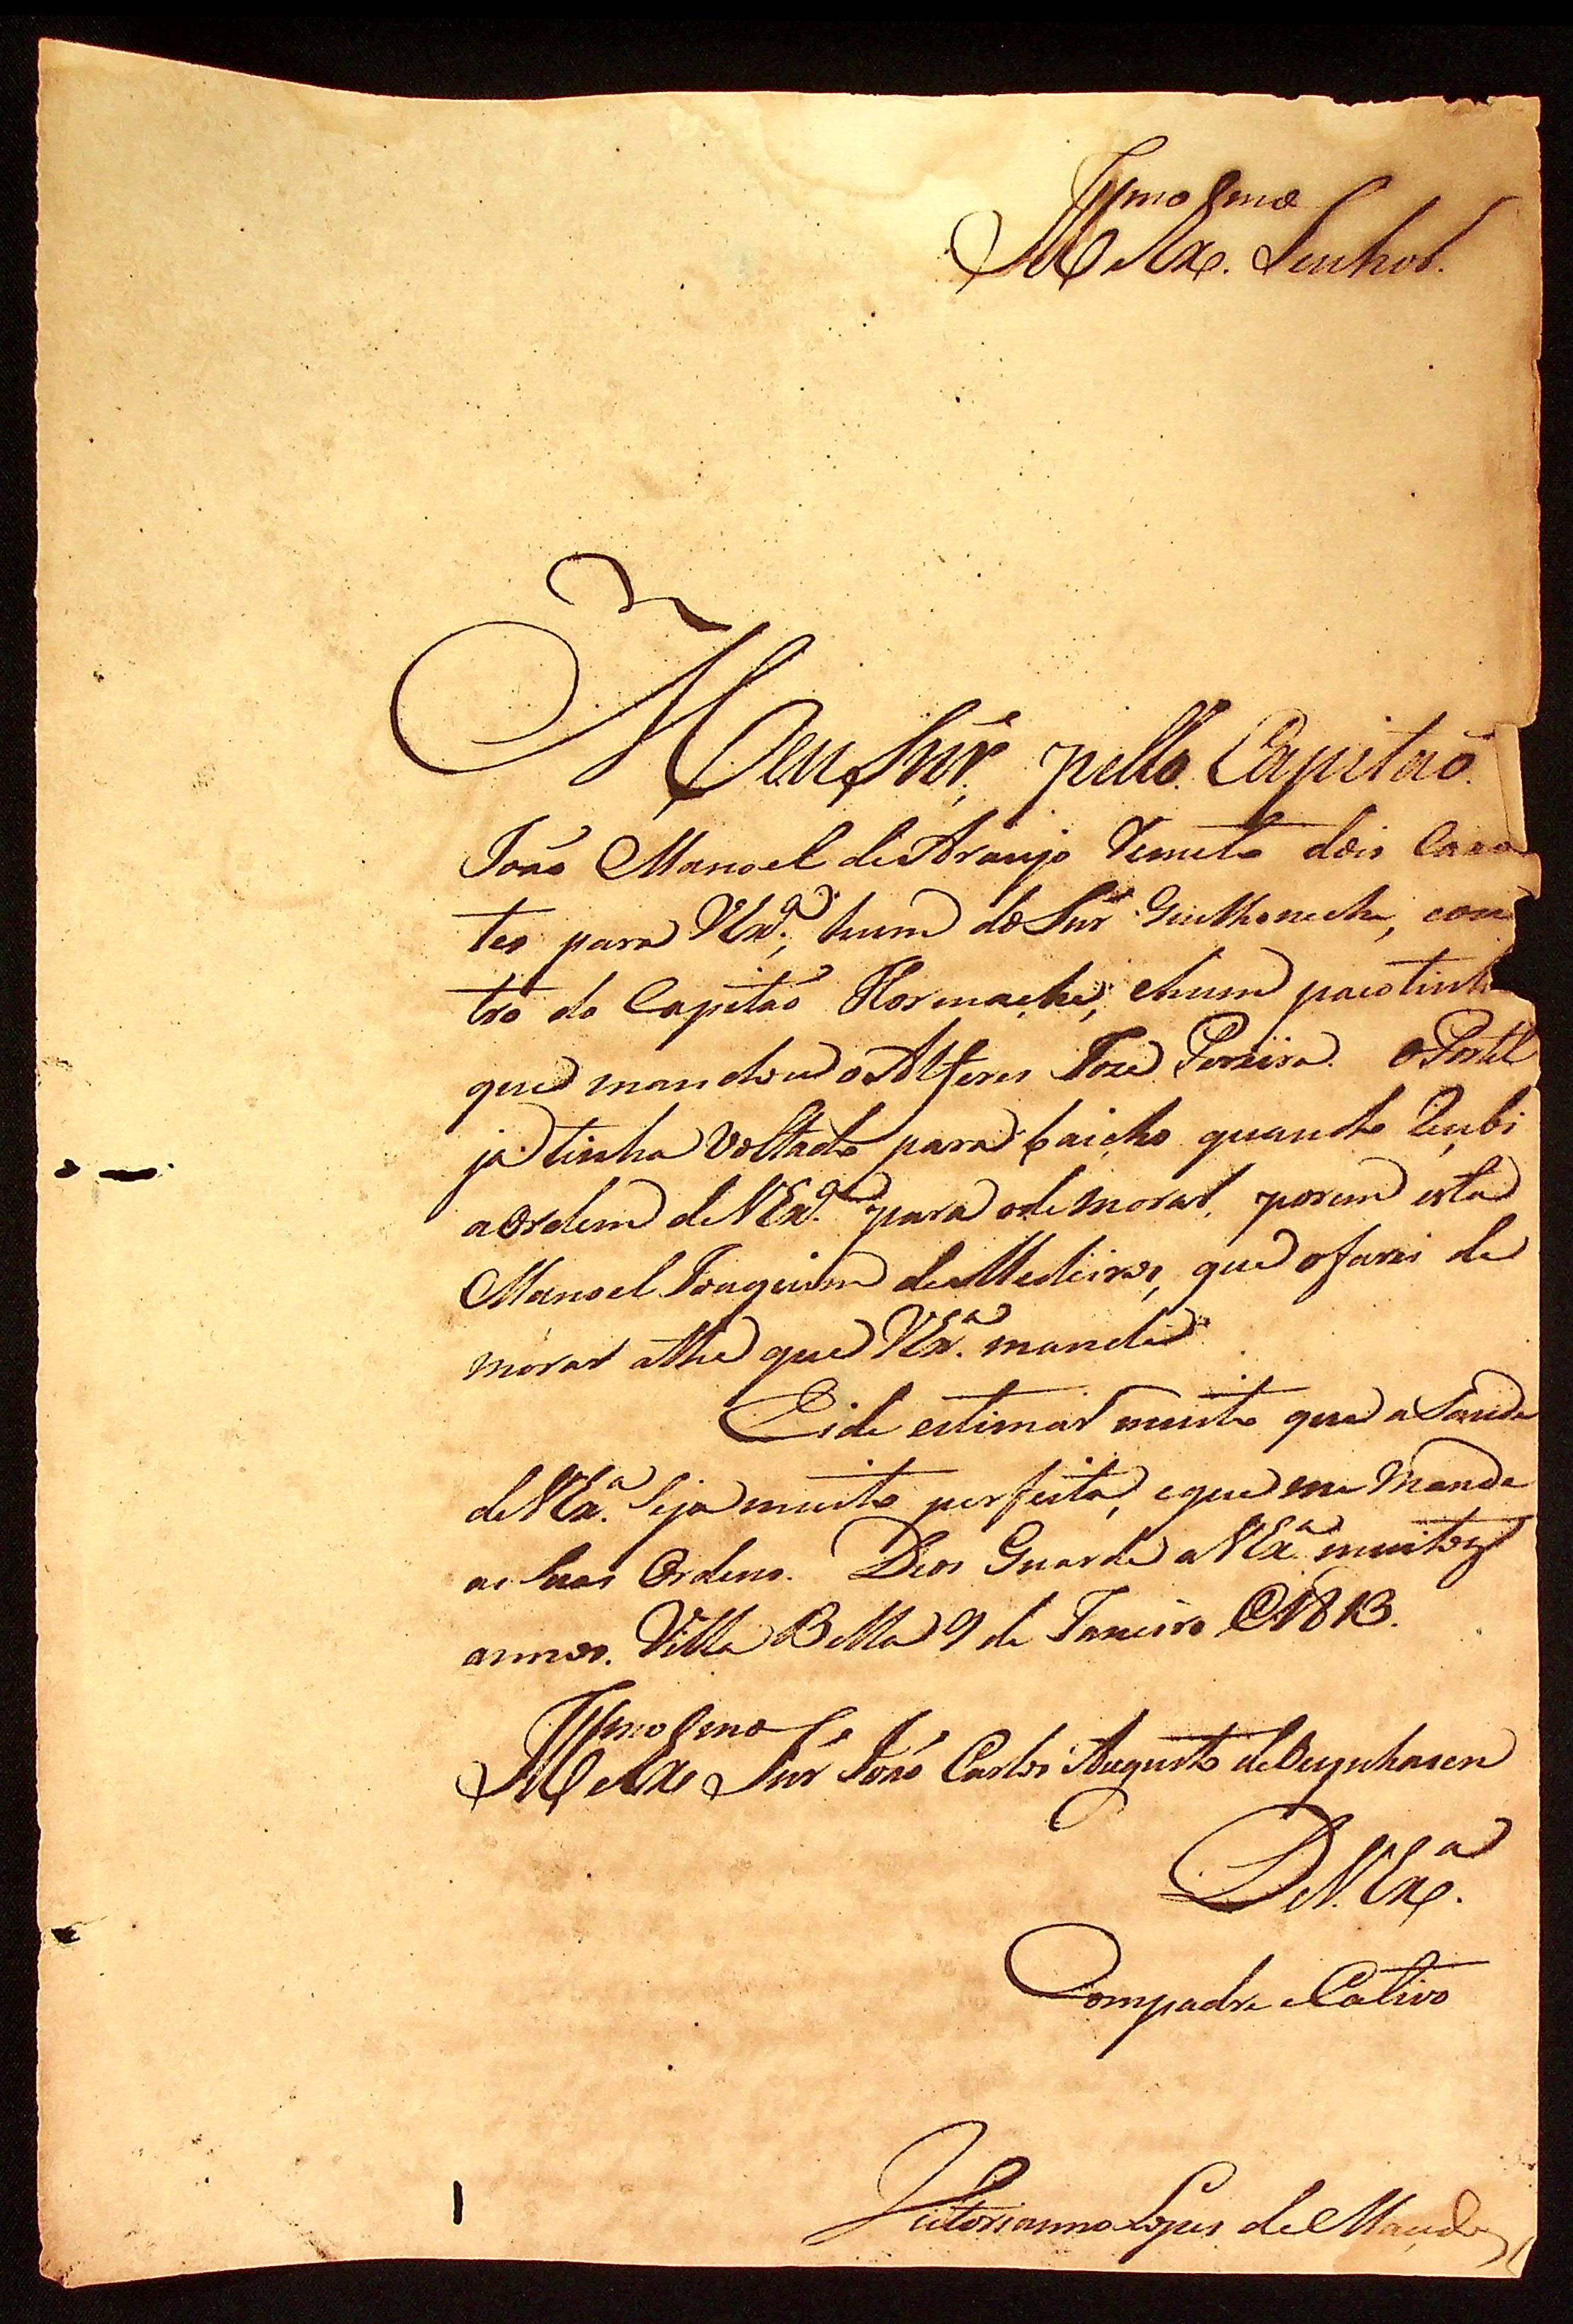 Illmo e Exmo Senhor.
Meu Snr̃. pello Capitaõ
Joaõ Manoel de Araujo Remeto dois Caxo
tes para VExa., hum do Snr̃
tro do Capitaõ ehum pacotinho
que mandou o Alferes Joze Pereira. o Portil
ja tinha Voltado para baicho quando Recibi
a Ordem de VExa. para o de morar, porem esta
Manoel Joaquim de Medeiros, que o farei de
morar athe que VExa. mande
Eide estimar muito que a Saude
de VExa. Seja muito perfeita, e que me Mande
as Suas Ordens. Deos Guarde a VExa. muitos
annos. Villa Bella 9 de Janeiro @ 1813.
Illmo e Exmo Snr̃ Joaõ Carlos Augusto de Oeynhasen
De V. Exa.
Compadre e Cativo
Victorianno Lopes de